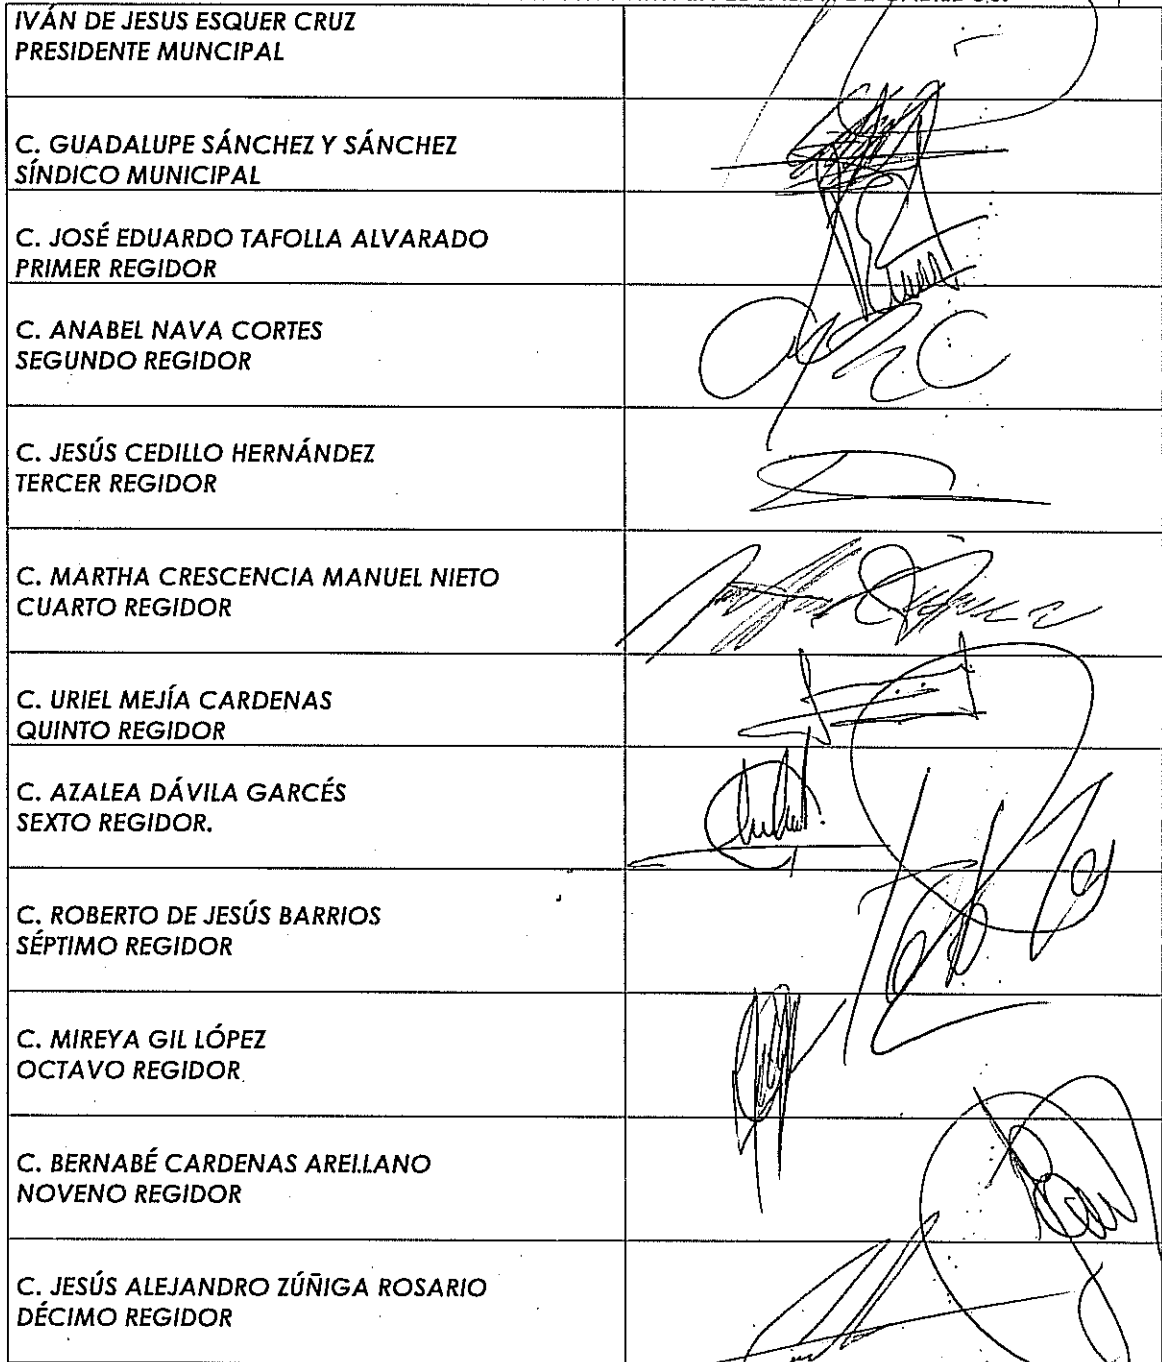 IVÁN DE JESUS ESQUER CRUZ
PRESIDENTE MUNCIPAL
C. GUADALUPE SÁNCHEZ Y SÁNCHEZ
SÍNDICO MUNICIPAL
C. JOSÉ EDUARDO TAFOLLA ALVARADO
PRIMER REGIDOR
C. ANABEL NAVA CORTES
SEGUNDO REGIDOR
C. JESÚS CEDILLO HERNÁNDEZ
TERCER REGIDOR
C. MARTHA CRESCENCIA MANUEL NIETO
CUARTO REGIDOR
C. URIEL MEJÍA CARDENAS
QUINTO REGIDOR
C. AZALEA DÁVILA GARCÉS
SEXTO REGIDOR.
C. ROBERTO DE JESÚS BARRIOS
SÉPTIMO REGIDOR
C. MIREYA GIL LÓPEZ
OCTAVO REGIDOR
C. BERNABÉ CARDENAS ARELLANO
NOVENO REGIDOR
C. JESÚS ALEJANDRO ZÚÑIGA ROSARIO
DÉCIMO REGIDOR